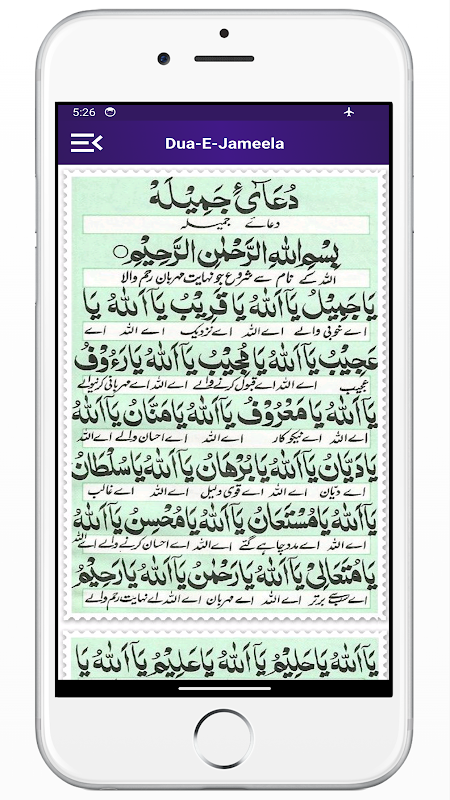 5:26
Dua-E-Jameela
دُعَائ جَمِيْلَهْ
دعائے جمیلہ
بِسْمِ اللهِ الرَّحْمٰنِ الرَّحِيْمِ
اللہ کے نام سے شروع جو نہایت مہربان رحم والا
يَا جَمِيْلُ يَآ اَللهُ يَا قَرِيْبُ يَآ اَللهُ يَا
اے خوبی والے اے اللہ اے نزدیک اے اللہ اے
عَجِيْبُ يَآ اَللهُ يَا مُجِيْبُ يَآ اَللهُ يَا رَءُوْفُ
عجیب اے اللہ اے قبول کرنے والے اے اللہ اے مہربانی کرنیوالے
يَآ اَللهُ يَا مَعْرُوْفُ يَآ اَللهُ يَا مَنَّانُ يَآ اَللهُ
اے اللہ اے نیکو کار اے اللہ اے احسان والے اے اللہ
يَا دَيَّانُ يَآ اَللهُ يَا بُرْهَانُ يَآ اَللهُ يَا سُلْطَانُ
اے دیان اے اللہ اے قوی دلیل اے اللہ اے غالب
يَآ اَللهُ يَا مُسْتَعَانُ يَآ اَللهُ يَا مُحْسِنُ يَآ اَللهُ
اے اللہ اے مدد چاہے گئے اے اللہ اے احسان کرنے والے اے اللہ
يَا مُتَعَالِيْ يَآ اَللهُ يَا رَحْمٰنُ يَآ اَللهُ يَا رَحِيْمُ
اے سب سے برتر اے اللہ اے مہربان اے اللہ اے نہایت رحم والے
يَآ اَللهُ يَا حَلِيْمُ يَآ اَللهُ يَا عَلِيْمُ يَآ اَللهُ يَا